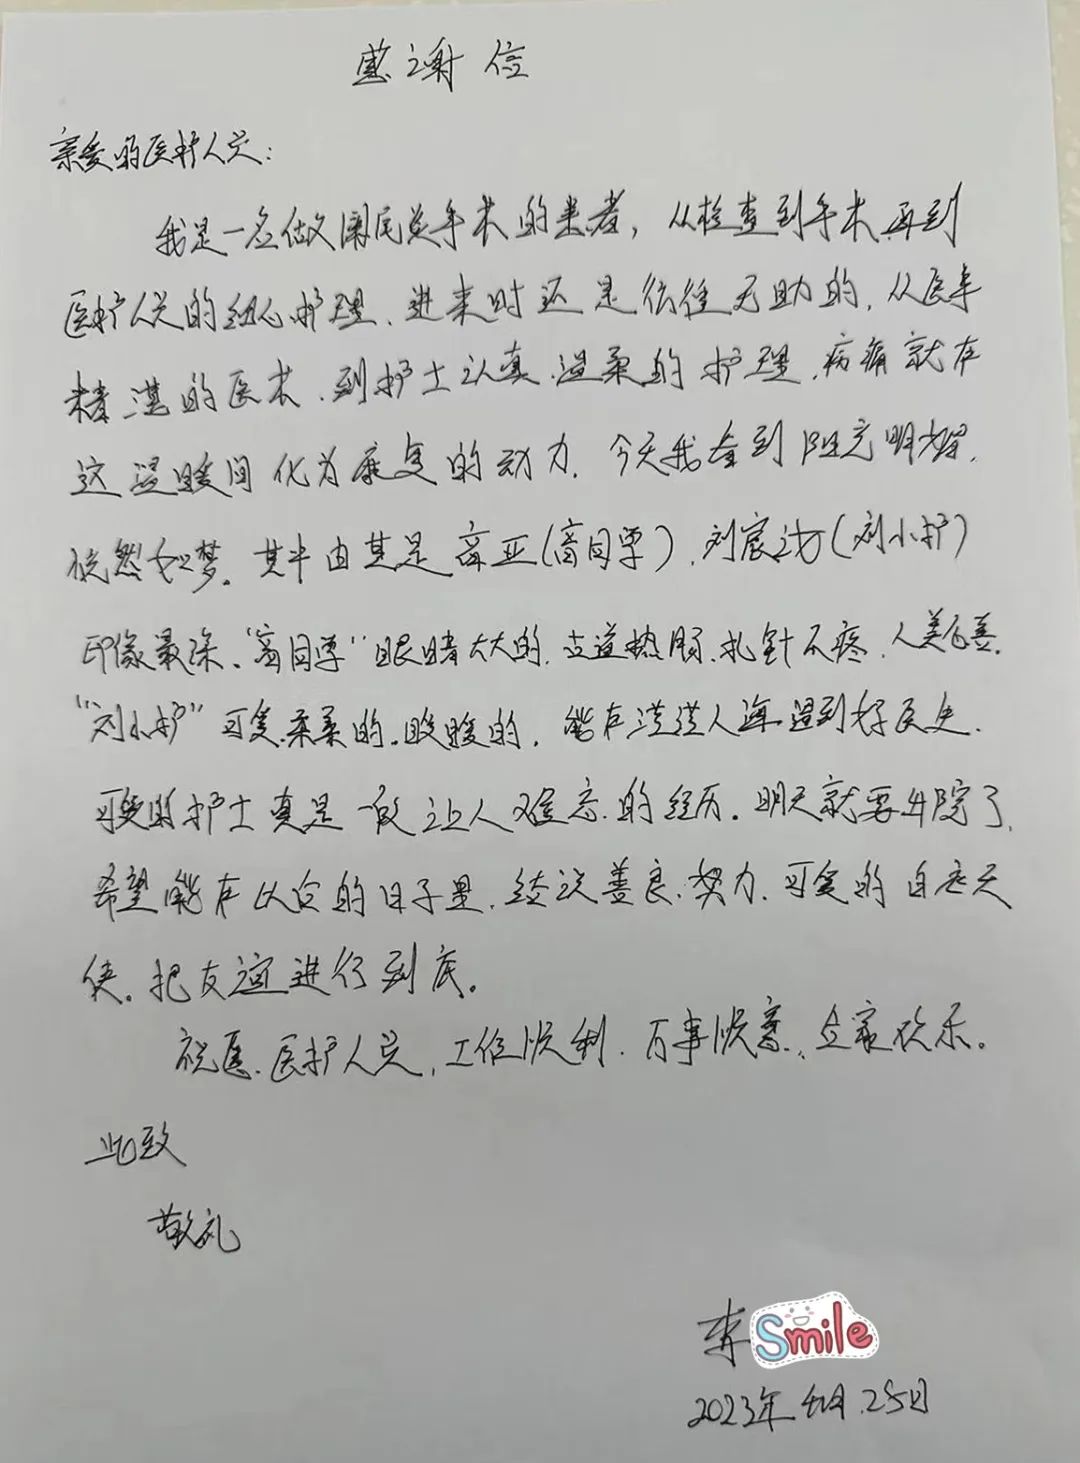 感谢信
亲爱的医护人员：
我是一名做阑尾炎手术的患者，从检查到手术,再到
医护人员的细心护理、进来时还是彷徨无助的，从医生
精湛的医术、到护士认真、温柔的护理，病痛就在
这温暖间化为康复的动力．今天我看到阳光明媚，
恍然如梦。其中由其是高亚(高同学)，刘宸(刘小护)
印像最深、"高同学"眼睛大大的，古道热肠、扎针不疼，人美心善，
"刘小护"可爱、柔柔的。暖暖的，能在茫茫人海遇到好医生、
可爱的护士真是一段让人难忘的经历。明天就要出院了，
希望能在以后的日子里，结识善良、努力、可爱的白衣天
使。把友谊进行到底。
祝愿、医护人员，工作顺利．万事顺意，全家欢乐。
此致
敬礼
李
Smile
2023年4月25日